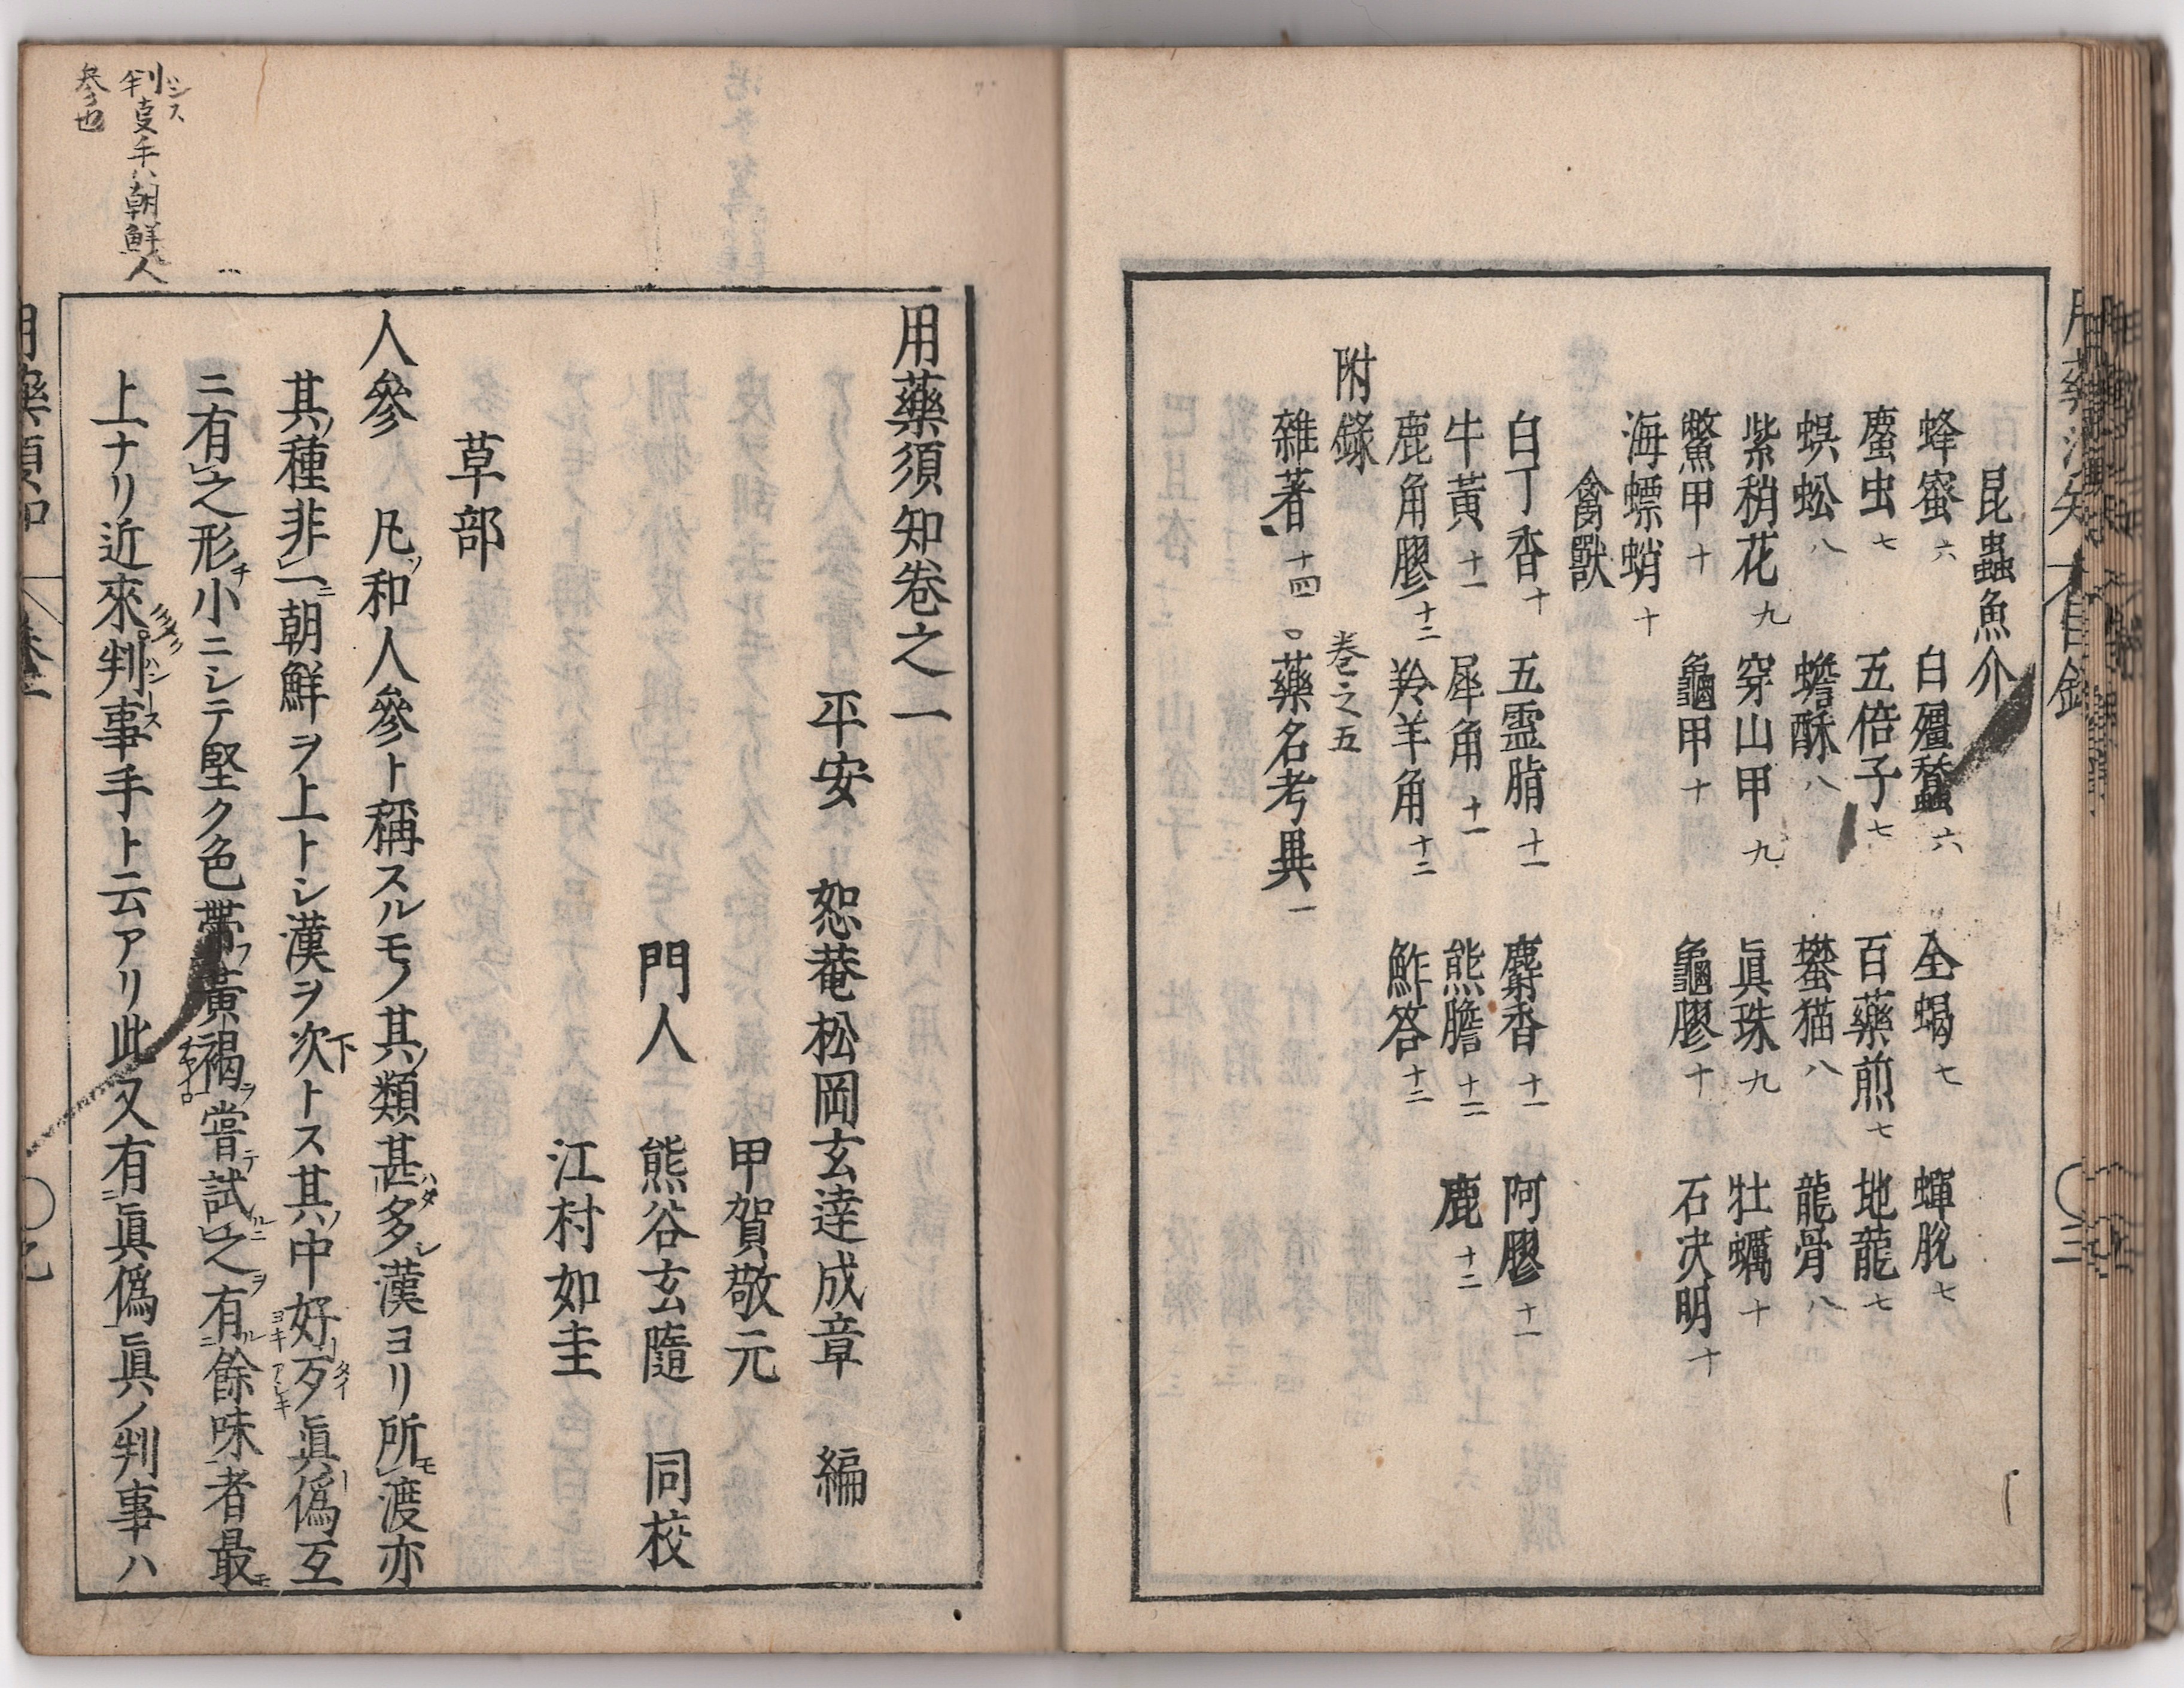 昆蟲魚介
蜂蜜六　白殭蠶六　全蝎七　蟬脫七
䗪虫七　五倍子七　百藥煎七　地龍七
蜈蚣八　蟾酥八　蟹猫八　龍骨八
紫稍花九　穿山甲九　眞珠九　牡蠣十
鱉甲十　龜甲十　龜膠十　石決明十
海螵蛸十
禽獸
白丁香十　五靈脂十一　麝香十一　阿膠十一
牛黃十一　犀角十一　熊膽十二　鹿十二
鹿角膠十二　羚羊角十二　鮓荅十二
附錄　卷之五
雜著十四　藥名考異一
用藥須知卷之一
平安　恕菴松岡玄達成章　編
甲賀敬元
門人　熊谷玄隨　同校
江村如圭
草部
人參　凡ソ和人參ト稱スルモノ其ノ類甚ハタ多シ漢ヨリ所モ渡亦
其ノ種非一ニ朝鮮ヲ上トシ漢ヲ次下トス其ノ中好ヨキ歹タイアシキ眞偽互
ニ有之形チ小ニシテ堅ク色帶フ黃褐チヤイロヲ嘗テ試ルニ之ヲ有ルニ餘味者最モ
上ナリ近來判ハンス事手ト云アリ此又有ニ眞偽眞ノ判事ハ
判ハンス事手ハ朝鮮人
參也